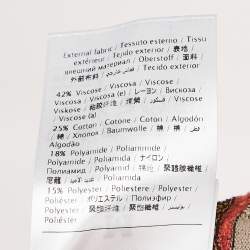 External fabric / Tessuto esterno / Tissu
extérieur / Tejido exterior / 表地 /
внешний материал / Oberstoff / 面料 /
外部布料 / قماش خارجي /
42% Viscose / Viscosa / Viscose /
Viskose / Viscosa / レーヨン / Вискоза /
Viskose / 粘胶纤维 / 嫘縈 / فسكوز / Viscosa /
Viscose (a)
25% Cotton / Cotone / Coton / Algodón
/ 綿 / Хлопок / Baumwolle / 棉 / 棉 /
Algodão
18% Polyamide / Poliammide /
Polyamide / Poliamida / ナイロン /
Полиамид / Polyamid / 锦纶 / 聚醯胺纖維 /
尼龍 / Poliamida
15% Polyester / Poliestere / Polyester /
Poliéster / ポリエステル / Полиэфир /
Polyester / 聚酯纤维 / 聚酯纖維 / بوليستر /
Poliéster